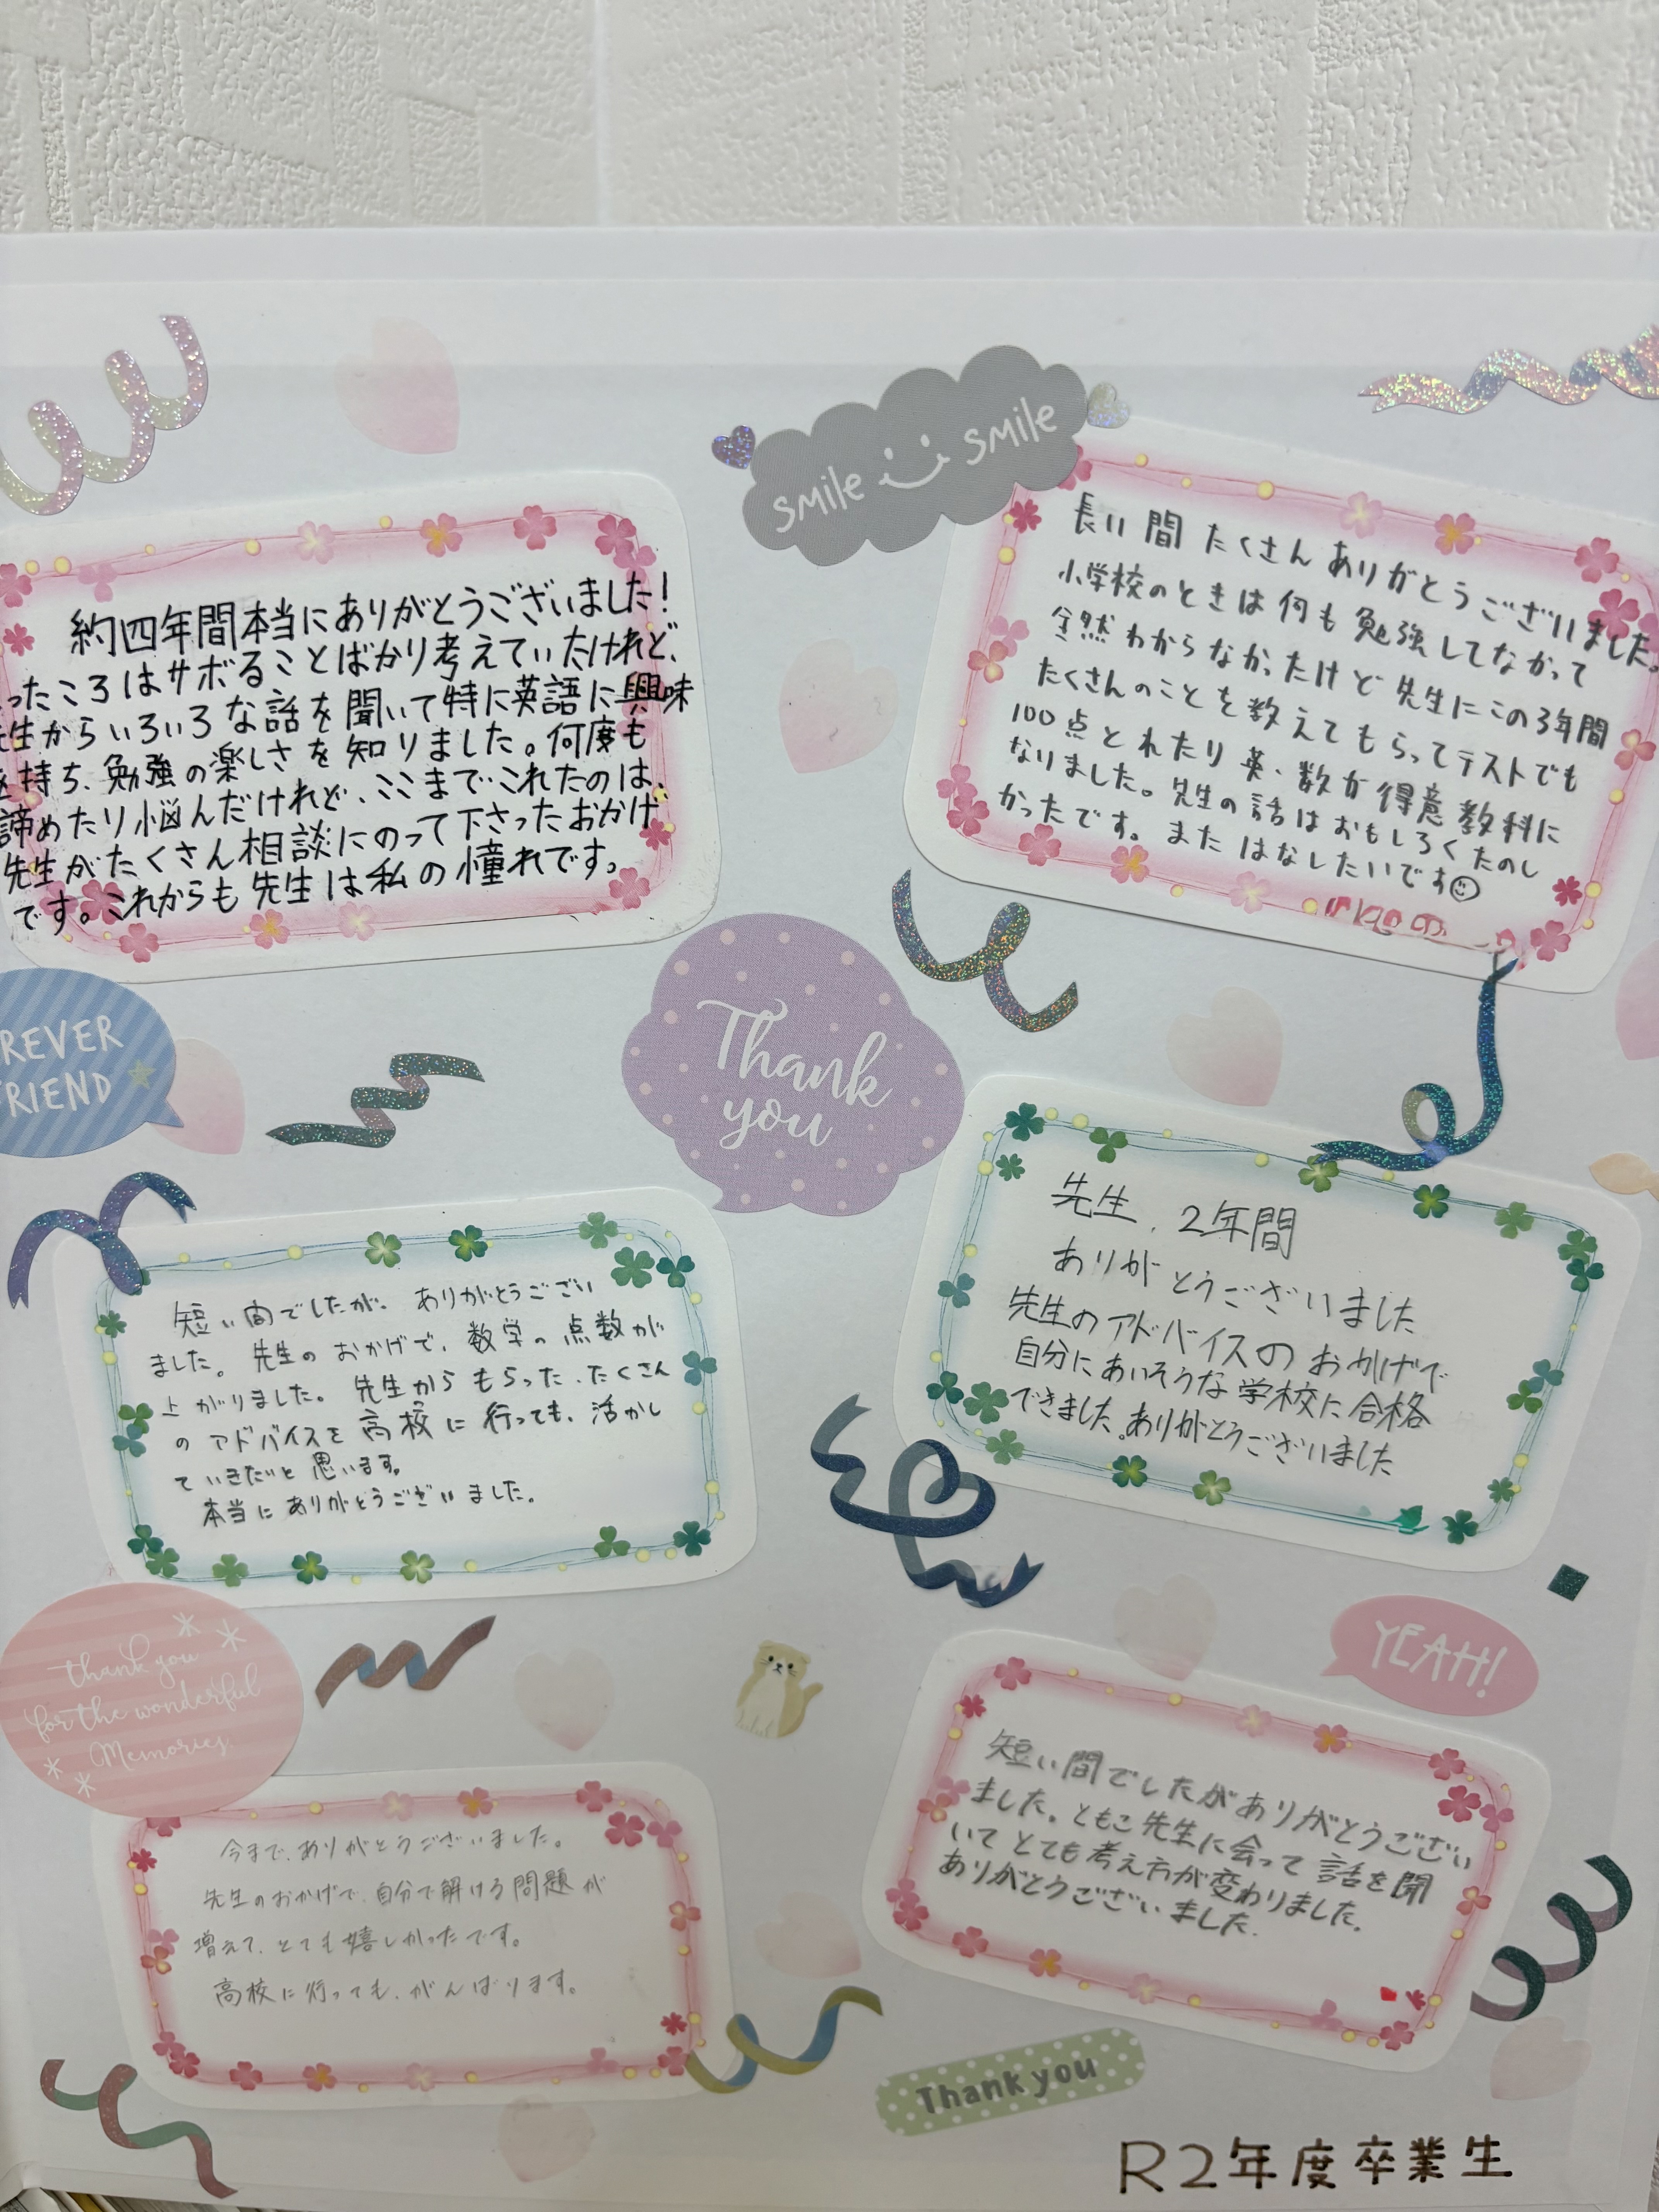 smile smile
約四年間本当にありがとうございました!
ったころはサボることばかり考えていたけれど、
先生からいろいろな話を聞いて特に英語に興味
を持ち、勉強の楽しさを知りました。何度も
諦めたり悩んだけれど、ここまでこれたのは、
先生がたくさん相談にのって下さったおかげ
です。これからも先生は私の憧れです。
長い間たくさんありがとうございました。
小学校のときは何も勉強してなかって
全然わからなかったけど先生にこの3年間
たくさんのことを教えてもらってテストでも
100点とれたり英、数が得意教科に
なりました。先生の話はおもしろくたのし
かったです。またはなしたいです
REVER
FRIEND
Thank
you
短い間でしたが、ありがとうござい
ました。先生のおかげで、数学の点数が
上がりました。先生からもらった、たくさん
のアドバイスを高校に行っても、活かし
ていきたいと思います。
本当にありがとうございました。
先生、2年間
ありがとうございました
先生のアドバイスのおかげで
自分にあいそうな学校に合格
できました。ありがとうございました
thank you
for the wonderful
Memories.
YEAH!
今まで、ありがとうございました。
先生のおかげで、自分で解ける問題が
増えて、とても嬉しかったです。
高校に行っても、がんばります。
短い間でしたがありがとうござい
ました。ともこ先生に会って話を聞
いてとても考え方が変わりました。
ありがとうございました.
Thank you
R2年度卒業生